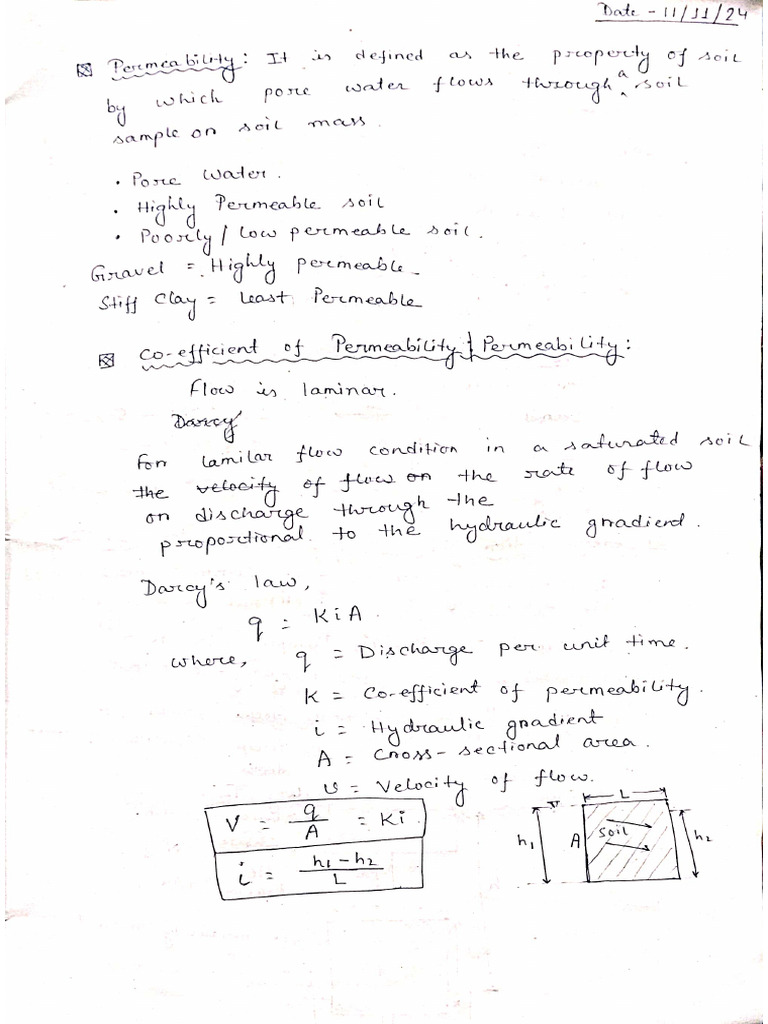 Date - 11/11/24
Permeability: It is defined as the property of soil
by which pore water flows through a soil
sample on soil mass.
• Pore Water.
• Highly Permeable soil
• Poorly / Low permeable soil.
Gravel = Highly permeable.
Stiff Clay = Least Permeable
Co-efficient of Permeability / Permeability:
Flow is laminar.
Darcy
For lamilar flow condition in a saturated soil
the velocity of flow on the rate of flow
on discharge through the
proportional to the hydraulic gradiend.
Darcy's law,
q = KiA.
where, q = Discharge per unit time.
K = Co-efficient of permeability.
i = Hydraulic gradient
A = Cross-sectional area.
v = Velocity of flow.
V = q/A = Ki
i = h₁-h₂/L
L
h₁ A soil h₂